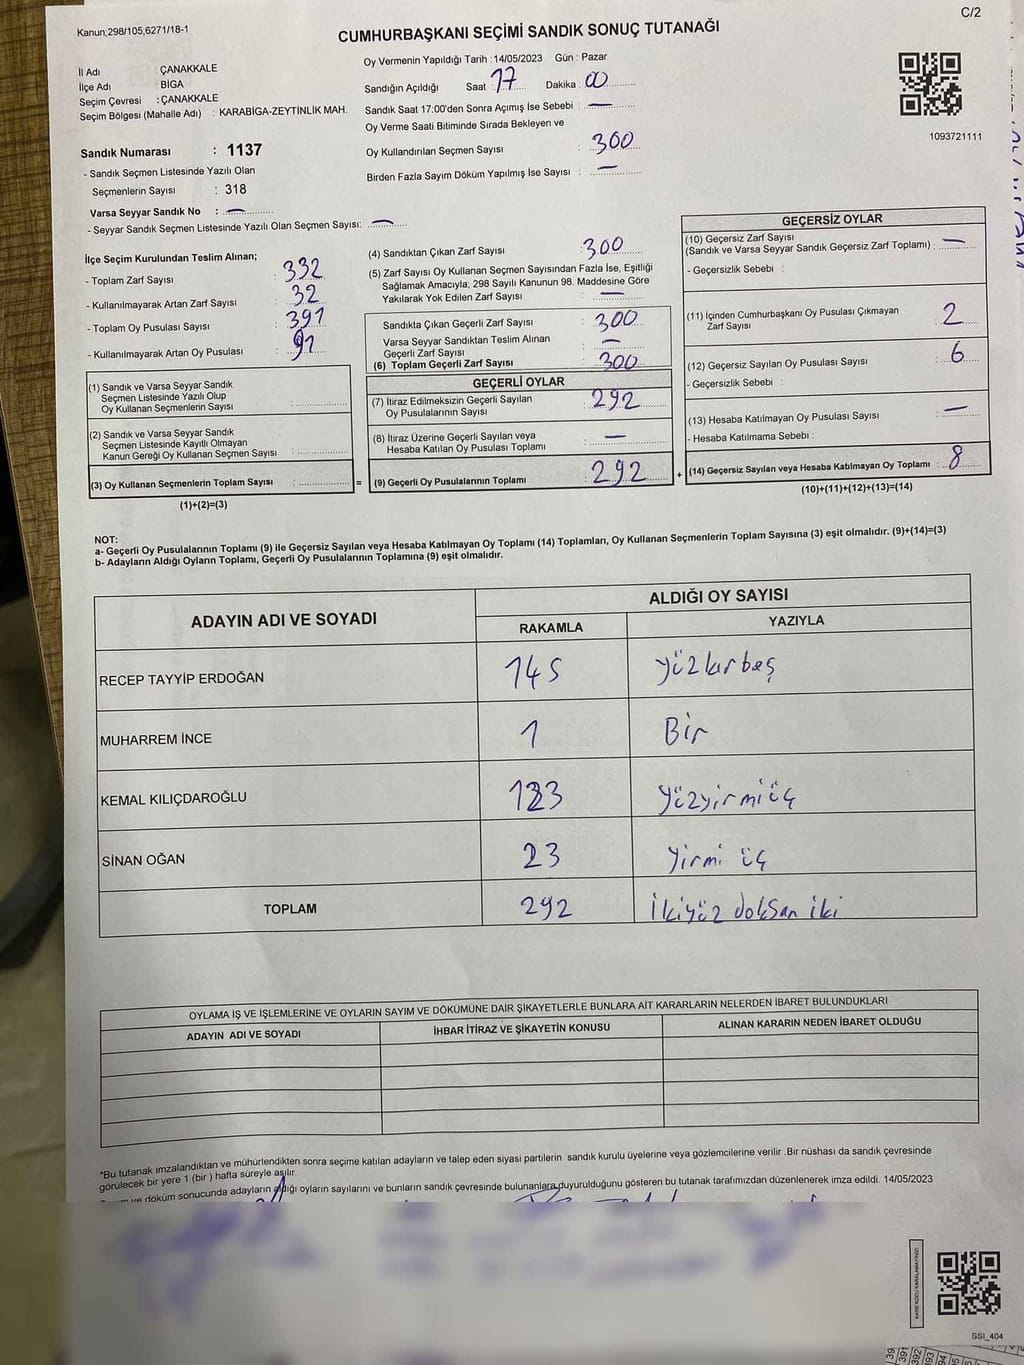 C/2
Kanun,298/105,6271/18-1
CUMHURBAŞKANI SEÇİMİ SANDIK SONUÇ TUTANAĞI
İl Adı : ÇANAKKALE
İlçe Adı : BİGA
Seçim Çevresi : ÇANAKKALE
Seçim Bölgesi (Mahalle Adı) : KARABİGA-ZEYTİNLİK MAH.
Sandık Numarası : 1137
- Sandık Seçmen Listesinde Yazılı Olan
Seçmenlerin Sayısı : 318
Varsa Seyyar Sandık No : —
- Seyyar Sandık Seçmen Listesinde Yazılı Olan Seçmen Sayısı: —
Oy Vermenin Yapıldığı Tarih : 14/05/2023 Gün : Pazar
Sandığın Açıldığı Saat 17 Dakika 00
Sandık Saat 17:00'den Sonra Açımış İse Sebebi : —
Oy Verme Saati Bitiminde Sırada Bekleyen ve
Oy Kullandırılan Seçmen Sayısı : 300
Birden Fazla Sayım Döküm Yapılmış İse Sayısı : —
1093721111
İlçe Seçim Kurulundan Teslim Alınan;
- Toplam Zarf Sayısı : 332
- Kullanılmayarak Artan Zarf Sayısı : 32
- Toplam Oy Pusulası Sayısı : 391
- Kullanılmayarak Artan Oy Pusulası : 91
(1) Sandık ve Varsa Seyyar Sandık
Seçmen Listesinde Yazılı Olup
Oy Kullanan Seçmenlerin Sayısı :
(2) Sandık ve Varsa Seyyar Sandık
Seçmen Listesinde Kayıtlı Olmayan
Kanun Gereği Oy Kullanan Seçmen Sayısı :
(3) Oy Kullanan Seçmenlerin Toplam Sayısı : =
(1)+(2)=(3)
(4) Sandıktan Çıkan Zarf Sayısı : 300
(5) Zarf Sayısı Oy Kullanan Seçmen Sayısından Fazla İse, Eşitliği
Sağlamak Amacıyla, 298 Sayılı Kanunun 98. Maddesine Göre
Yakılarak Yok Edilen Zarf Sayısı : —
Sandıkta Çıkan Geçerli Zarf Sayısı : 300
Varsa Seyyar Sandıktan Teslim Alınan
Geçerli Zarf Sayısı : —
(6) Toplam Geçerli Zarf Sayısı : 300
GEÇERLİ OYLAR
(7) İtiraz Edilmeksizin Geçerli Sayılan
Oy Pusulalarının Sayısı : 292
(8) İtiraz Üzerine Geçerli Sayılan veya
Hesaba Katılan Oy Pusulası Toplamı : —
(9) Geçerli Oy Pusulalarının Toplamı : 292 +
GEÇERSİZ OYLAR
(10) Geçersiz Zarf Sayısı
(Sandık ve Varsa Seyyar Sandık Geçersiz Zarf Toplamı) : —
- Geçersizlik Sebebi :
(11) İçinden Cumhurbaşkanı Oy Pusulası Çıkmayan
Zarf Sayısı : 2
(12) Geçersiz Sayılan Oy Pusulası Sayısı : 6
- Geçersizlik Sebebi :
(13) Hesaba Katılmayan Oy Pusulası Sayısı : —
- Hesaba Katılmama Sebebi :
(14) Geçersiz Sayılan veya Hesaba Katılmayan Oy Toplamı : 8
(10)+(11)+(12)+(13)=(14)
NOT:
a- Geçerli Oy Pusulalarının Toplamı (9) ile Geçersiz Sayılan veya Hesaba Katılmayan Oy Toplamı (14) Toplamları, Oy Kullanan Seçmenlerin Toplam Sayısına (3) eşit olmalıdır. (9)+(14)=(3)
b- Adayların Aldığı Oyların Toplamı, Geçerli Oy Pusulalarının Toplamına (9) eşit olmalıdır.
ADAYIN ADI VE SOYADI ALDIĞI OY SAYISI
RAKAMLA YAZIYLA
RECEP TAYYİP ERDOĞAN 145 yüzkırbeş
MUHARREM İNCE 1 Bir
KEMAL KILIÇDAROĞLU 123 yüzyirmiüç
SİNAN OĞAN 23 Yirmi üç
TOPLAM 292 İkiyüz doksan iki
OYLAMA İŞ VE İŞLEMLERİNE VE OYLARIN SAYIM VE DÖKÜMÜNE DAİR ŞİKAYETLERLE BUNLARA AİT KARARLARIN NELERDEN İBARET BULUNDUKLARI
ADAYIN ADI VE SOYADI İHBAR İTİRAZ VE ŞİKAYETİN KONUSU ALINAN KARARIN NEDEN İBARET OLDUĞU
*Bu tutanak imzalandıktan ve mühürlendikten sonra seçime katılan adayların ve talep eden siyasi partilerin sandık kurulu üyelerine veya gözlemcilerine verilir .Bir nüshası da sandık çevresinde
görülecek bir yere 1 (bir ) hafta süreyle asılır.
ve döküm sonucunda adayların aldığı oyların sayılarını ve bunların sandık çevresinde bulunanlara duyurulduğunu gösteren bu tutanak tarafımızdan düzenlenerek imza edildi. 14/05/2023
KARE KODU KARALAMAYINIZ!
SSI_404